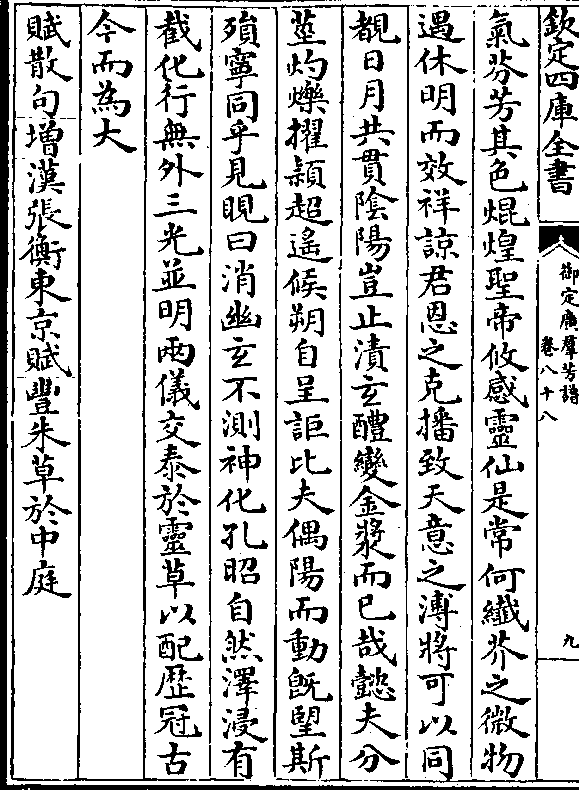 欽定四庫全書
御定廣羣芳譜
卷八十八
九
氣芬芳其色焜煌聖帝攸感靈仙是常何纖芥之微物
遇休明而效祥諒君恩之克播致天意之溥將可以同
覩日月共貫陰陽豈止漬玄醴變金漿而已哉懿夫分
莖灼爍擢穎超遙候朔自呈詎比夫偶陽而動旣望斯
殞寧同乎見晛曰消幽玄不測神化孔昭自然澤浸有
截化行無外三光並明兩儀交泰於靈草以配歴冠古
今而為大
賦散句增漢張衡東京賦豐朱草於中庭